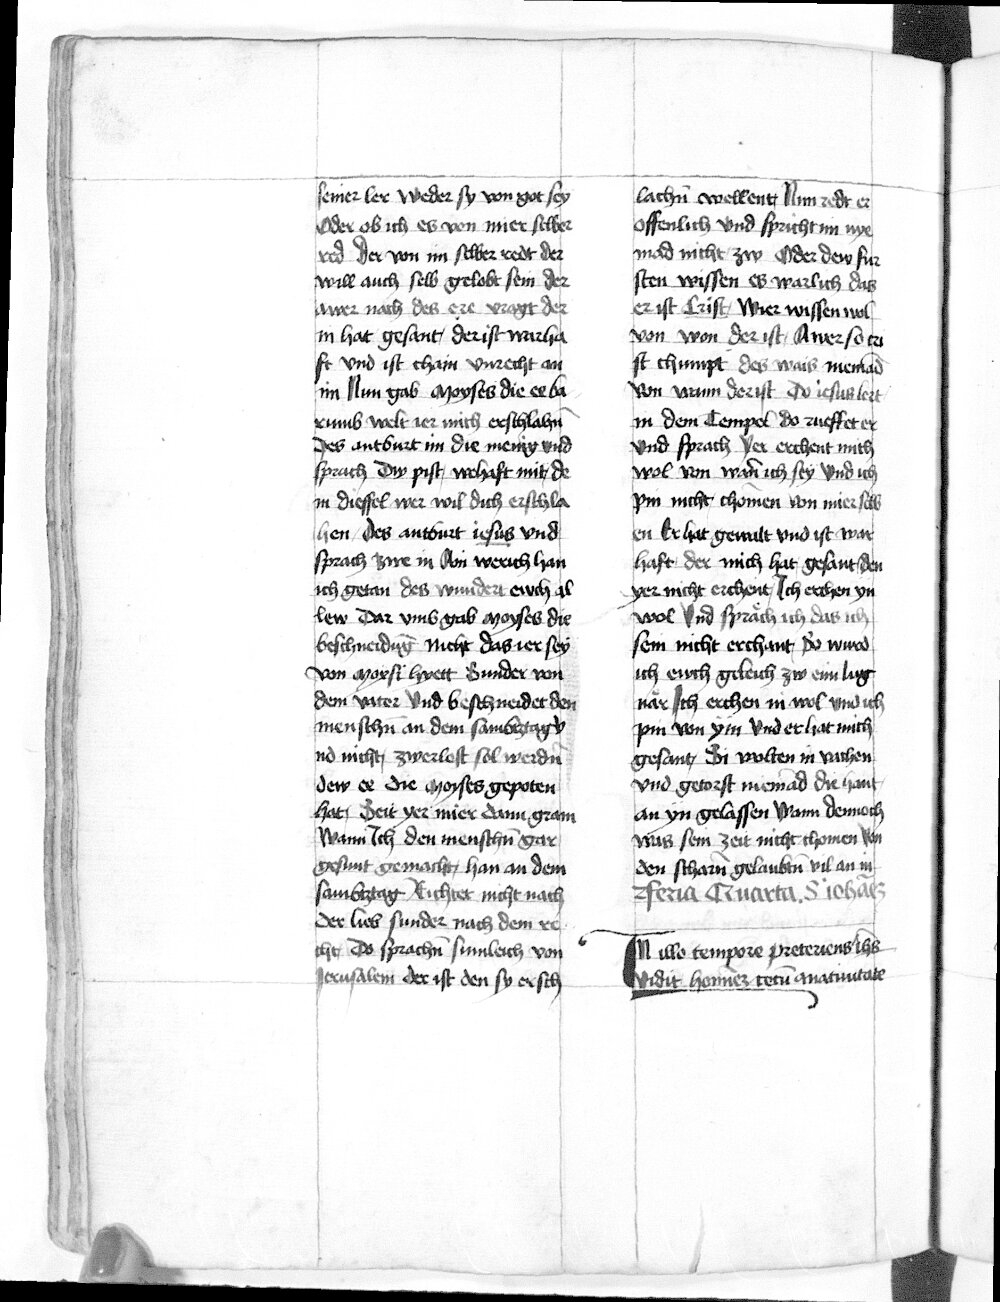 seiner ler weder sy von got sey
Oder ob ich es von mier selber
red Der von im selber redt der
will auch selb gelobt sein der
awer nach des ere vragt der
in hat gesant der ist warha
ft vnd ist chain vnrecht an
im Nun gab Moyses die ee ba
rumb welt ier mich erschlahn̄
Des antburt im die menig vnd
sprach Dw pist wehaft mit de
m dieffel wer wil dich erschla
hen Des antburt iesus vnd
sprach zwe in Ain werch han
ich getan des wundert euch al
lew Dar vmb gab Moyses die
beschneidūg Nicht das ier sey
von Moysi hyett Sunder von
dem vater Vnd beschneidet den
menschn̄ an dem sambtztag v
nd nicht zwerlost sol werdn̄
dew ee die Moyses gepoten
hat Seit yer mier dann gram
Wann Ich den menschn̄ gar
gesunt gemacht han an dem
sambtztag Richtet nicht nach
der lieb sunder nach dem re
cht Do sprachn̄ sumleich von
Jerusalem der ist den sy ersch
lachn̄ wellent Nun redt er
offenlich vnd spricht im nye
mad nicht zw Oder dew fur
sten wissen es warlich das
er ist Crist Wier wissen wol
von won der ist Awer so cri
st chumpt des wais niemād
von wann der ist Do iesus lert
in dem Tempel do rueffet er
vnd sprach Yer erchent mich
wol von wan̄ ich sey Vnd ich
pin nicht chōmen von mier selb
en Er hat gewalt vnd ist war
haft der mich hat gesant den
yer nicht erchent Ich erchen yn
wol Vnd sprǎch ich das ich
sein nicht erchant So wurd
ich euch geleich zw eim lug
nǎr Ich erchen in wol vnd ich
pin von ym Vnd er hat mich
gesant Si wolten in vachen
vnd getorst niemād die hant
an yn gelassen Wann dennoch
was sein zeit nicht chomen Von
den scharn̄ gelaubtn̄ vil an in
Feria Quarta S iohān̄es
In illo tempore preteriens ih̄s
vidit homin̄ez cecū a natiuitate